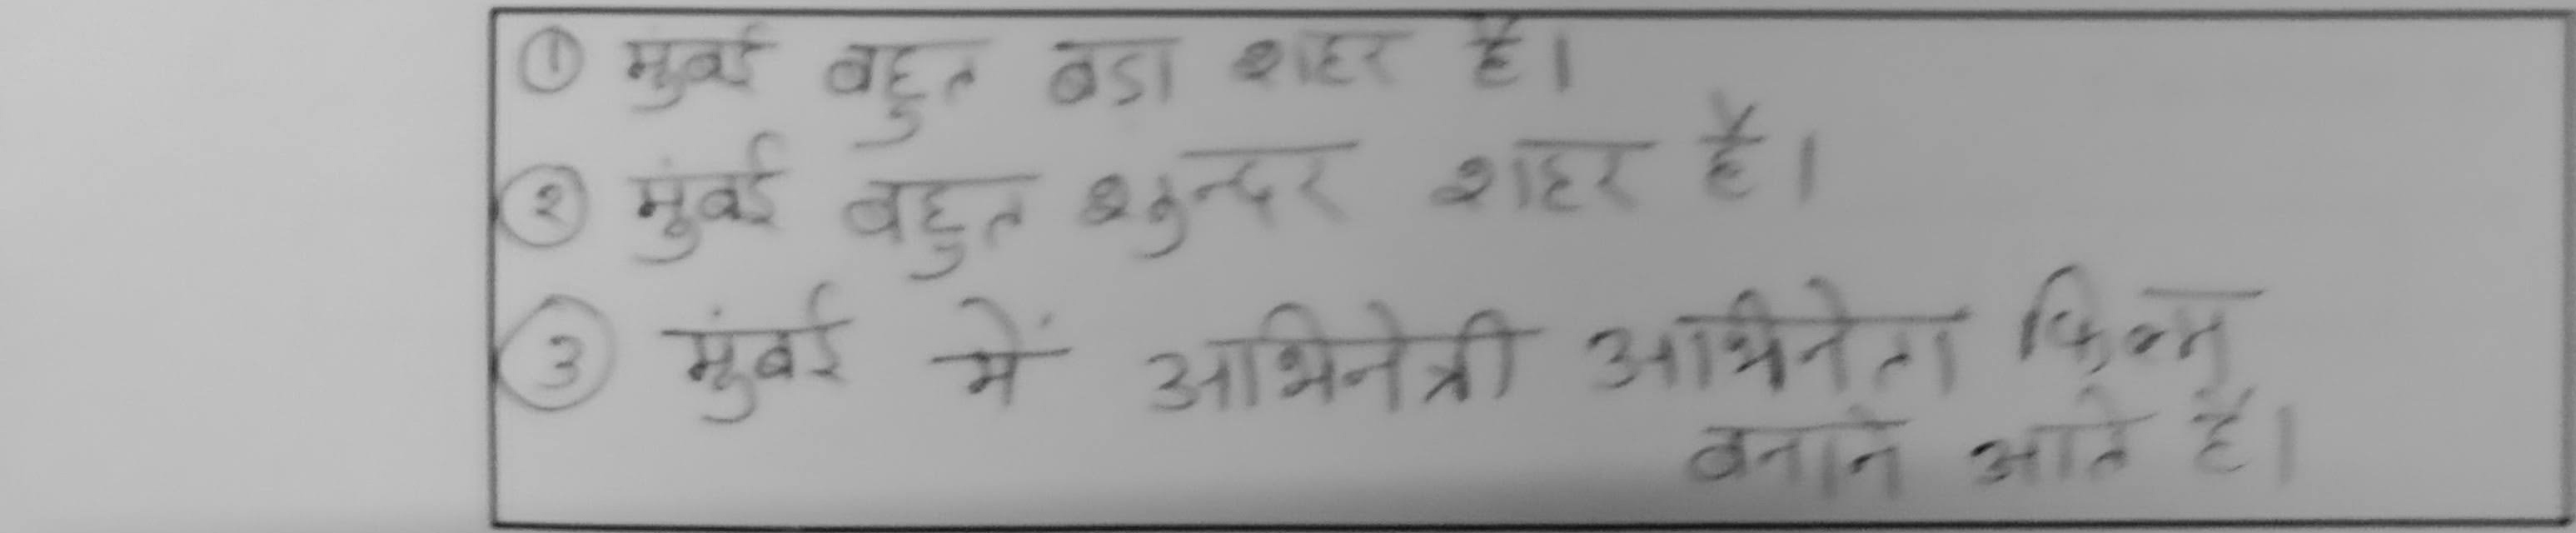 ① मुबई बहुत बडा शहर है।
② मुंबई बहुत शुन्दर शहर है।
③ मुंबई में अभिनेत्री अभिनेता फिल्म
बनाने आते है।